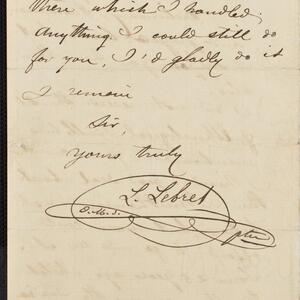 There which I handled.
Anything I could still do
for you, I'd gladly do it
I remain
Sir,
yours truly
L. Lebret
O.M.I.
ptre